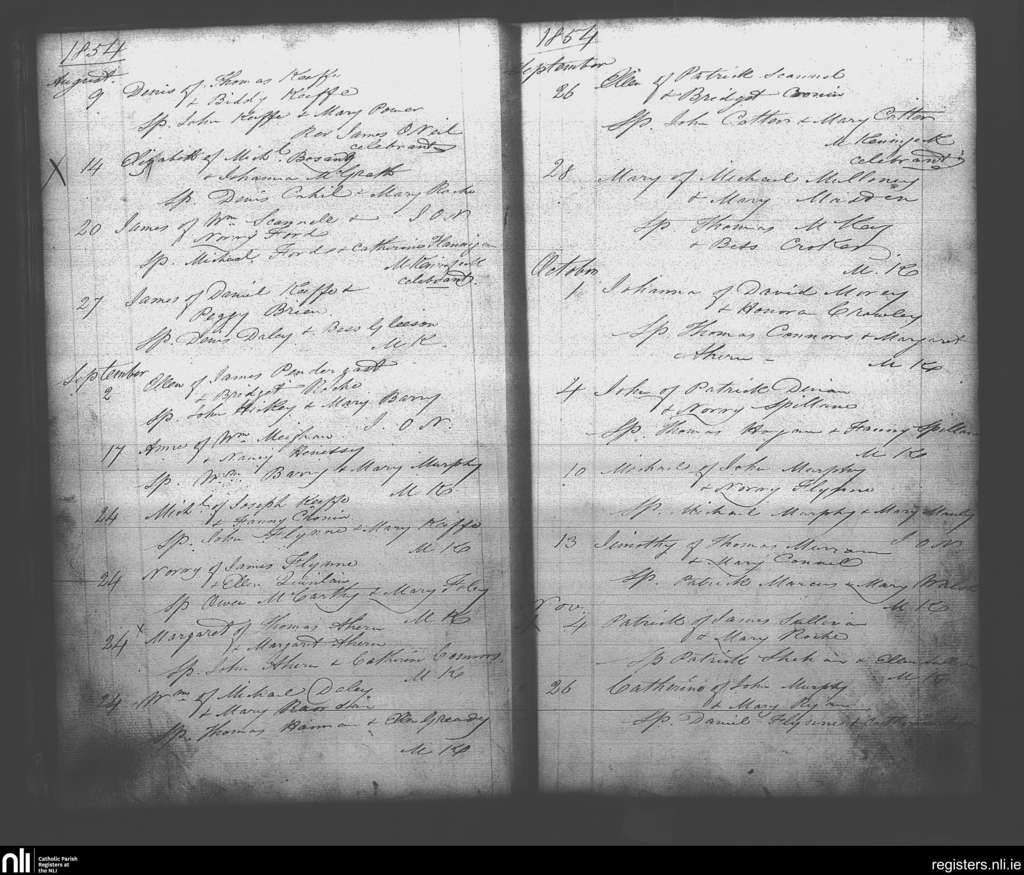 1854
August
9 Denis of Thomas Keeffe
& Biddy Keiffe
Sp. John Keeffe & Mary Power
Rev James O'Neil
celebrant
X 14 Elizabeth of Michl
& Johanna McGrath
Sp. Denis Cahil & Mary Roche
J. O N
20 James of Wm Scannele &
Norry Ford
Sp. Micheal Ford & Catherine Flannigan
celebrant.
27 James of Daniel Keeffe &
Peggy Brien
Sp. Denis Daley & Bess Gleeson
M K
September
2 Ellen of James Pendergast
& Bridget Roche
Sp. John Hickey & Mary Barry
J. O N.
17 Anne of Wm Meighan
& Nancy Henessy
Sp. Wm Barry & Mary Murphy
M K
24 Michl of Joseph Keeffe
& Fanny Cronin
Sp. John Flynne & Mary Keeffe
M K
24 Norry of James Flynne
& Ellen Quinlain
Sp Owen McCarthy & Mary Foley
M K
24 x Margaret of Thomas Ahern
& Margaret Ahern
Sp. John Ahern & Catherin Connors.
M K
24 Wm of Michael Daley
& Mary
Sp. Thomas Hannan & Ellen Greandy
M K
1854
September
26 Ellen of Patrick Scannel
& Bridget Cronin
Sp. John Cotter & Mary Cotter
celebrant
28 Mary of Michael Mulloney
& Mary Madden
Sp. Thomas McKey
& Bess Croker
M. K
October
1 Johanna of David Morey
& Honora Crowley
Sp Thomas Connors & Margaret
Ahern
M K
4 John of Patrick
& Norry Spillane
Sp. Thomas Hogan & Fanny Spillan
M K
10 Michael of John Murphy
& Norry Flynne
Sp. Michael Murphy & Mary
J O N
13 Timothy of Thomas
& Mary Connel
Sp. Patrick Marcus & Mary Walsh
M K
Nov.
X 4 Patrick of James Sullivan
& Mary Roche
Sp Patrick & Ellen
M K
26 Catherine of John Murphy
& Mary Ryan
Sp. Daniel Flynne &
nli
Catholic Parish
Registers at
the NLI
registers.nli.ie